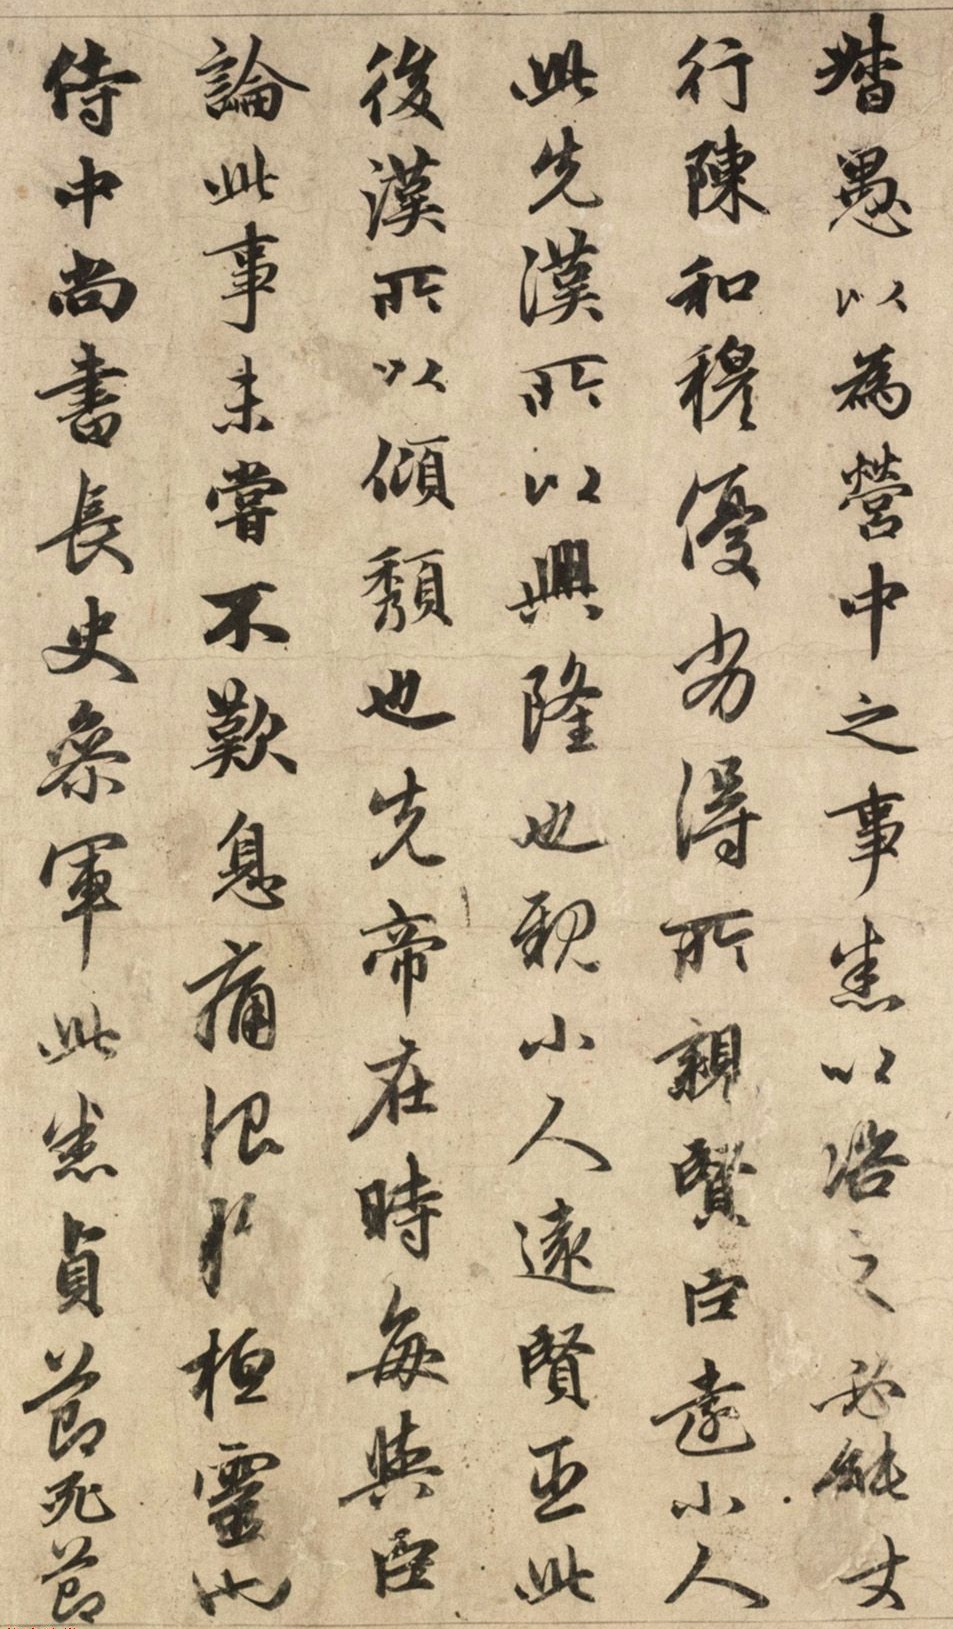 督愚以為營中之事悉以咨之必能使
行陳和穆優劣得所親賢臣遠小人
此先漢所以興隆也親小人遠賢臣此
後漢所以傾頹也先帝在時每與臣
論此事未嘗不歎息痛恨於桓靈也
侍中尚書長史參軍此悉貞節死節